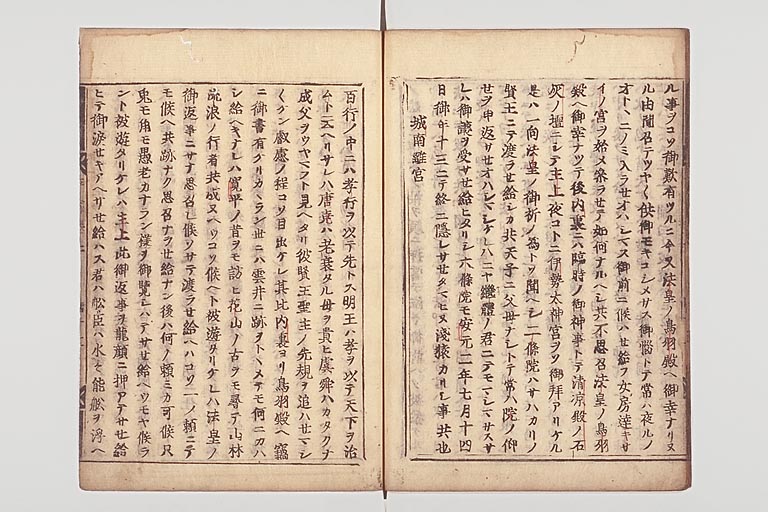 ル事ヲコソ御歎有ツルニ今又法皇ノ鳥羽殿ヘ御幸ナリヌ
ル由聞召テツヤく供御モキコシメサス御悩トテ常ハ夜ルノ
オトヽニノミ入ラセオハシマス御前ニ候ハせ給フ女房達キサ
イノ宮ヲ始メ奈ラせテ如何ナルヘシ共不思召法皇ノ鳥羽
殿ヘ御幸ナツテ後内裏ニハ臨時ノ御神事トテ清凉殿ノ石
灰ノ壇ニシテ主上夜コトニ伊勢太神宮ヲソ御拜アリケル
是ハ一向法皇ノ御祈ノ為トソ聞ヘシ二條院ハサハカリノ
賢王ニテ渡ラせ給シカ共天子ニ父母ナシトテ常ハ院ノ仰
せヲ申返サせオハシマシケレハニヤ継體ノ君ニテモマシマサス
レハ御譲ヲ受サせ給ヒタリシ六條院モ安元二年七月十四
日御年十三ニテ終ニ隠レサせタマヒヌ淺猿カリシ事共也
城南離宮
百行ノ中ニハ孝行ヲ以テ先トス明王ハ孝ヲ以テ天下ヲ治
ムト云ヘリサレハ唐堯ハ老衰タル母ヲ貴ヒ虞舜ハカタクナ
成父ヲウヤマフト見ヘタリ彼賢王聖主ノ先規ヲ追ハせマシ
くケン叡慮ノ程コソ目出ケレ其比内裏ヨリ鳥羽殿ヘ竊
ニ御書有グリカヽラン世ニハ雲井ニ跡ヲトヽメテモ何ニカハ
シ給ヘキナレハ寛平ノ昔ヲモ訪ヒ花山ノ古ヲモ尋テ山林
流浪ノ行者共成ヌヘフコソ候ヘト被遊タリケレハ法皇ノ
御返事ニサナ思召シ候ソサテ渡ラせ給ヘハコソ一ノ頼ニテ
モ候ヘ共跡ナク思召ナラせ給ナン後ハ何ノ頼ミカ可候只
兎モ角モ愚老カナラン樣ヲ御覽シハテサせ給ヘフモヤ候ラ
ント被遊タリケレハ主上此御返事ヲ龍顔ニ押アテサせ給
ヒテ御涙せキアヘサせ給ハス君ハ舩臣ハ水ゝ能舩ヲ浮ヘ